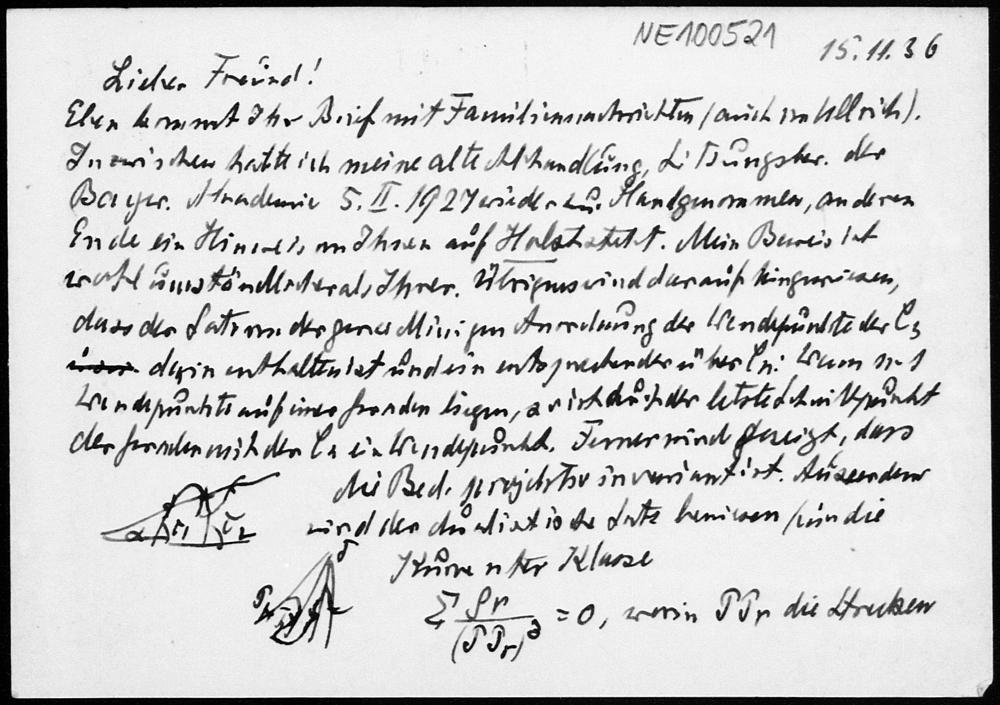 NE100521
15.11.36
Lieber Freund!
Eben kommt Ihr Brief mit Familiennachrichten (auch von Ullrich).
Inzwischen hatte ich meine alte Abhandlung, Sitzungsber. der
Bayer. Akademie 5.II.1927 wieder zur Hand genommen, an deren
Ende ein Hinweis an Ihren auf Holst steht. Mein Beweis ist
wohl umständlicher als Ihrer. Übrigens wird darauf hingewiesen,
dass der Satz von der geradlinigen Anordnung der Wendepunkte der C3
darin enthalten ist und ein entsprechender über Cn: Wenn n-1
Wendepunkte auf einer Geraden liegen, so ist auch der letzte Schnittpunkt
der Geraden mit der Cn ein Wendepunkt. Ferner wird gezeigt, dass
die Bed. projektiv invariant ist. Ausserdem
wird der dualistische Satz bewiesen für die
Kurve nter Klasse
Σ ρr/(PPr)³ = 0, worin PPr die Strecken